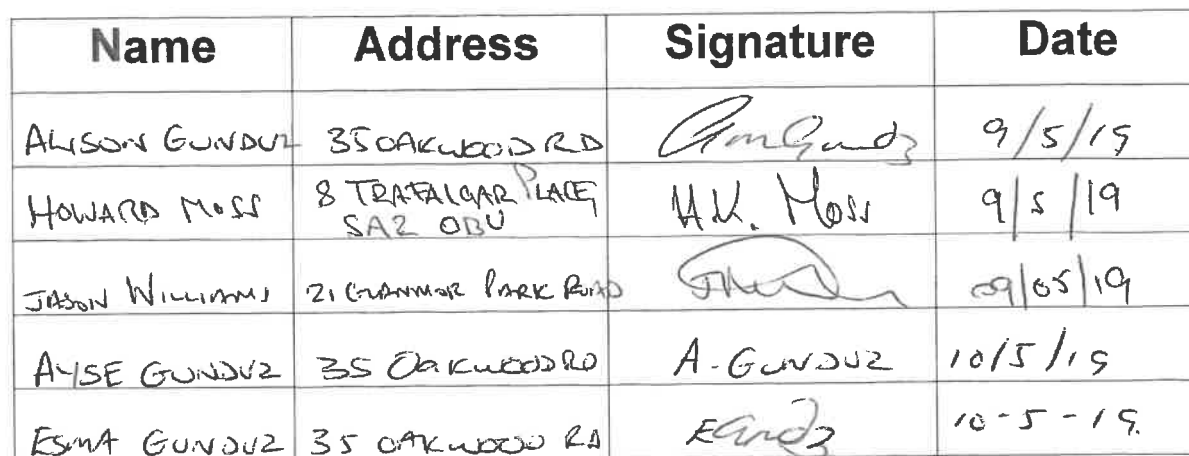 Name Address Signature Date
ALISON GUNDUZ 35 OAKWOOD RD 9/5/19
HOWARD MOSS 8 TRAFALGAR PLACE H.K. Moss 9/5/19
SA2 0BU
JASON WILLIAMS 21 GLANMOR PARK ROAD 09/05/19
AYSE GUNDUZ 35 OAKWOOD RD A-GUNDUZ 10/5/19
ESMA GUNDUZ 35 OAKWOOD RD 10-5-19.